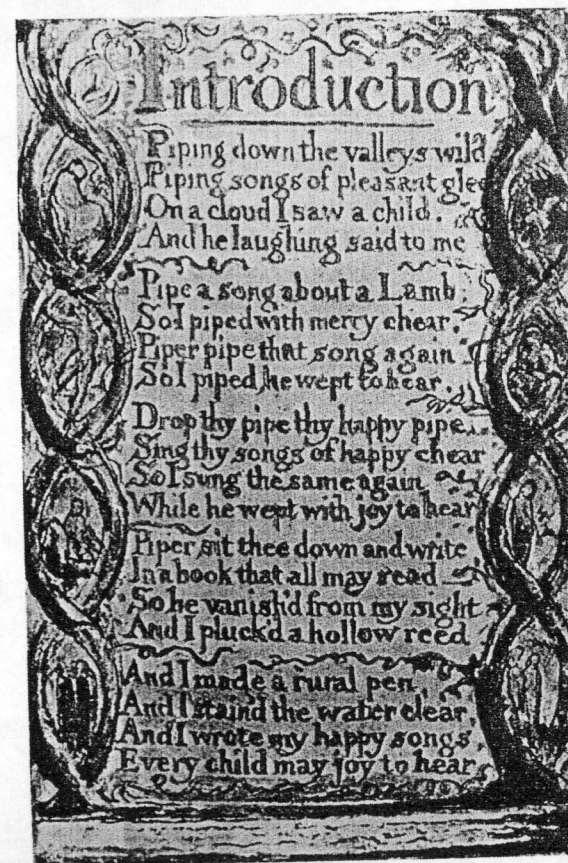 Introduction
Piping down the valleys wild
Piping songs of pleasant glee
On a cloud I saw a child.
And he laughing said to me
Pipe a song about a Lamb;
So I piped with merry chear,
Piper pipe that song again
So I piped, he wept to hear.
Drop thy pipe thy happy pipe
Sing thy songs of happy chear
So I sung the same again
While he wept with joy to hear
Piper sit thee down and write
In a book that all may read
So he vanish'd from my sight
And I pluck'd a hollow reed
And I made a rural pen,
And I stain'd the water clear,
And I wrote my happy songs,
Every child may joy to hear